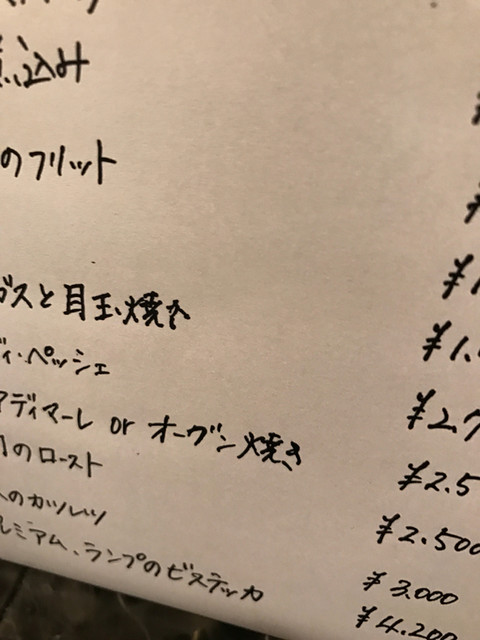 煮込み
のフリット
ガスと目玉焼き
ディ・ペッシェ
アディマーレ or オーブン焼き
のロースト
のカツレツ
レミアム、ランプのビステッカ
¥1.
¥2.7
¥2.5
¥2.500
¥3.000
¥4.200